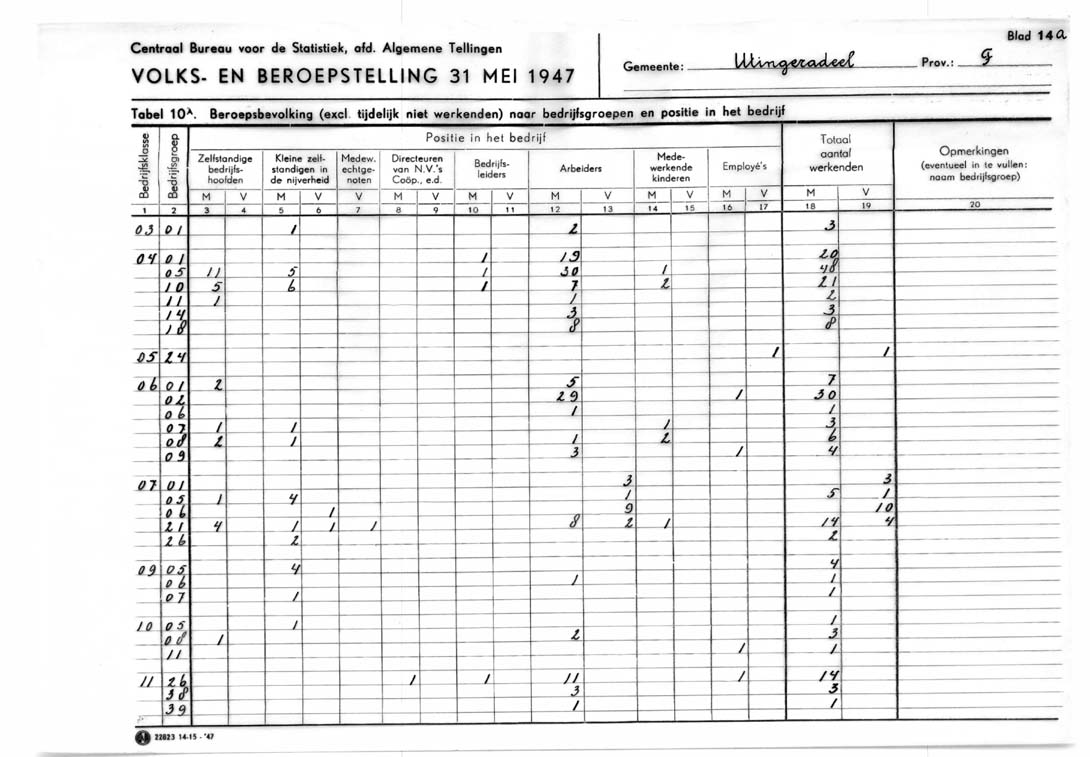 Blad 14a
Centraal Bureau voor de Statistiek, afd. Algemene Tellingen
VOLKS- EN BEROEPSTELLING 31 MEI 1947
Gemeente: Utingeradeel Prov.: F
Tabel 10A. Beroepsbevolking (excl. tijdelijk niet werkenden) naar bedrijfsgroepen en positie in het bedrijf
Bedrijfsklasse Bedrijfsgroep Positie in het bedrijf Totaal aantal werkenden Opmerkingen (eventueel in te vullen: naam bedrijfsgroep)
Zelfstandige bedrijfshoofden Kleine zelfstandigen in de nijverheid Medew. echtgenoten Directeuren van N.V.'s Coöp., e.d. Bedrijfsleiders Arbeiders Medewerkende kinderen Employé's
M V M V V M V M V M V M V M V M V
1 2 3 4 5 6 7 8 9 10 11 12 13 14 15 16 17 18 19 20
03 01 1 2 3
04 01 1 19 20
05 11 5 1 30 1 48
10 5 6 1 7 2 21
11 1 1 2
14 3 3
18 8 8
05 24 1 1
06 01 2 5 7
02 29 1 30
06 1 1
07 1 1 1 3
08 2 1 1 2 6
09 3 1 4
07 01 3 3
05 1 4 1 5 1
06 1 9 10
21 4 1 1 1 8 2 1 14 4
26 2 2
09 05 4 4
06 1 1
07 1 1
10 05 1 1
08 1 2 3
11 1 1
11 26 1 1 11 1 14
38 3 3
39 1 1
22823 14-15 - '47